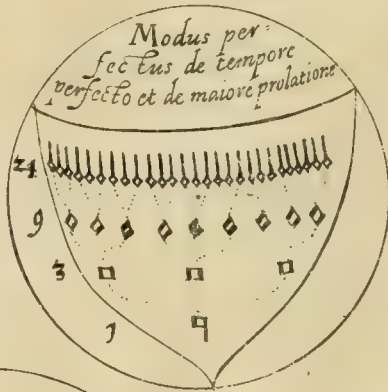 Modus per=
fectus de tempore
perfecto et de maiore prolatione
24
9
3
1